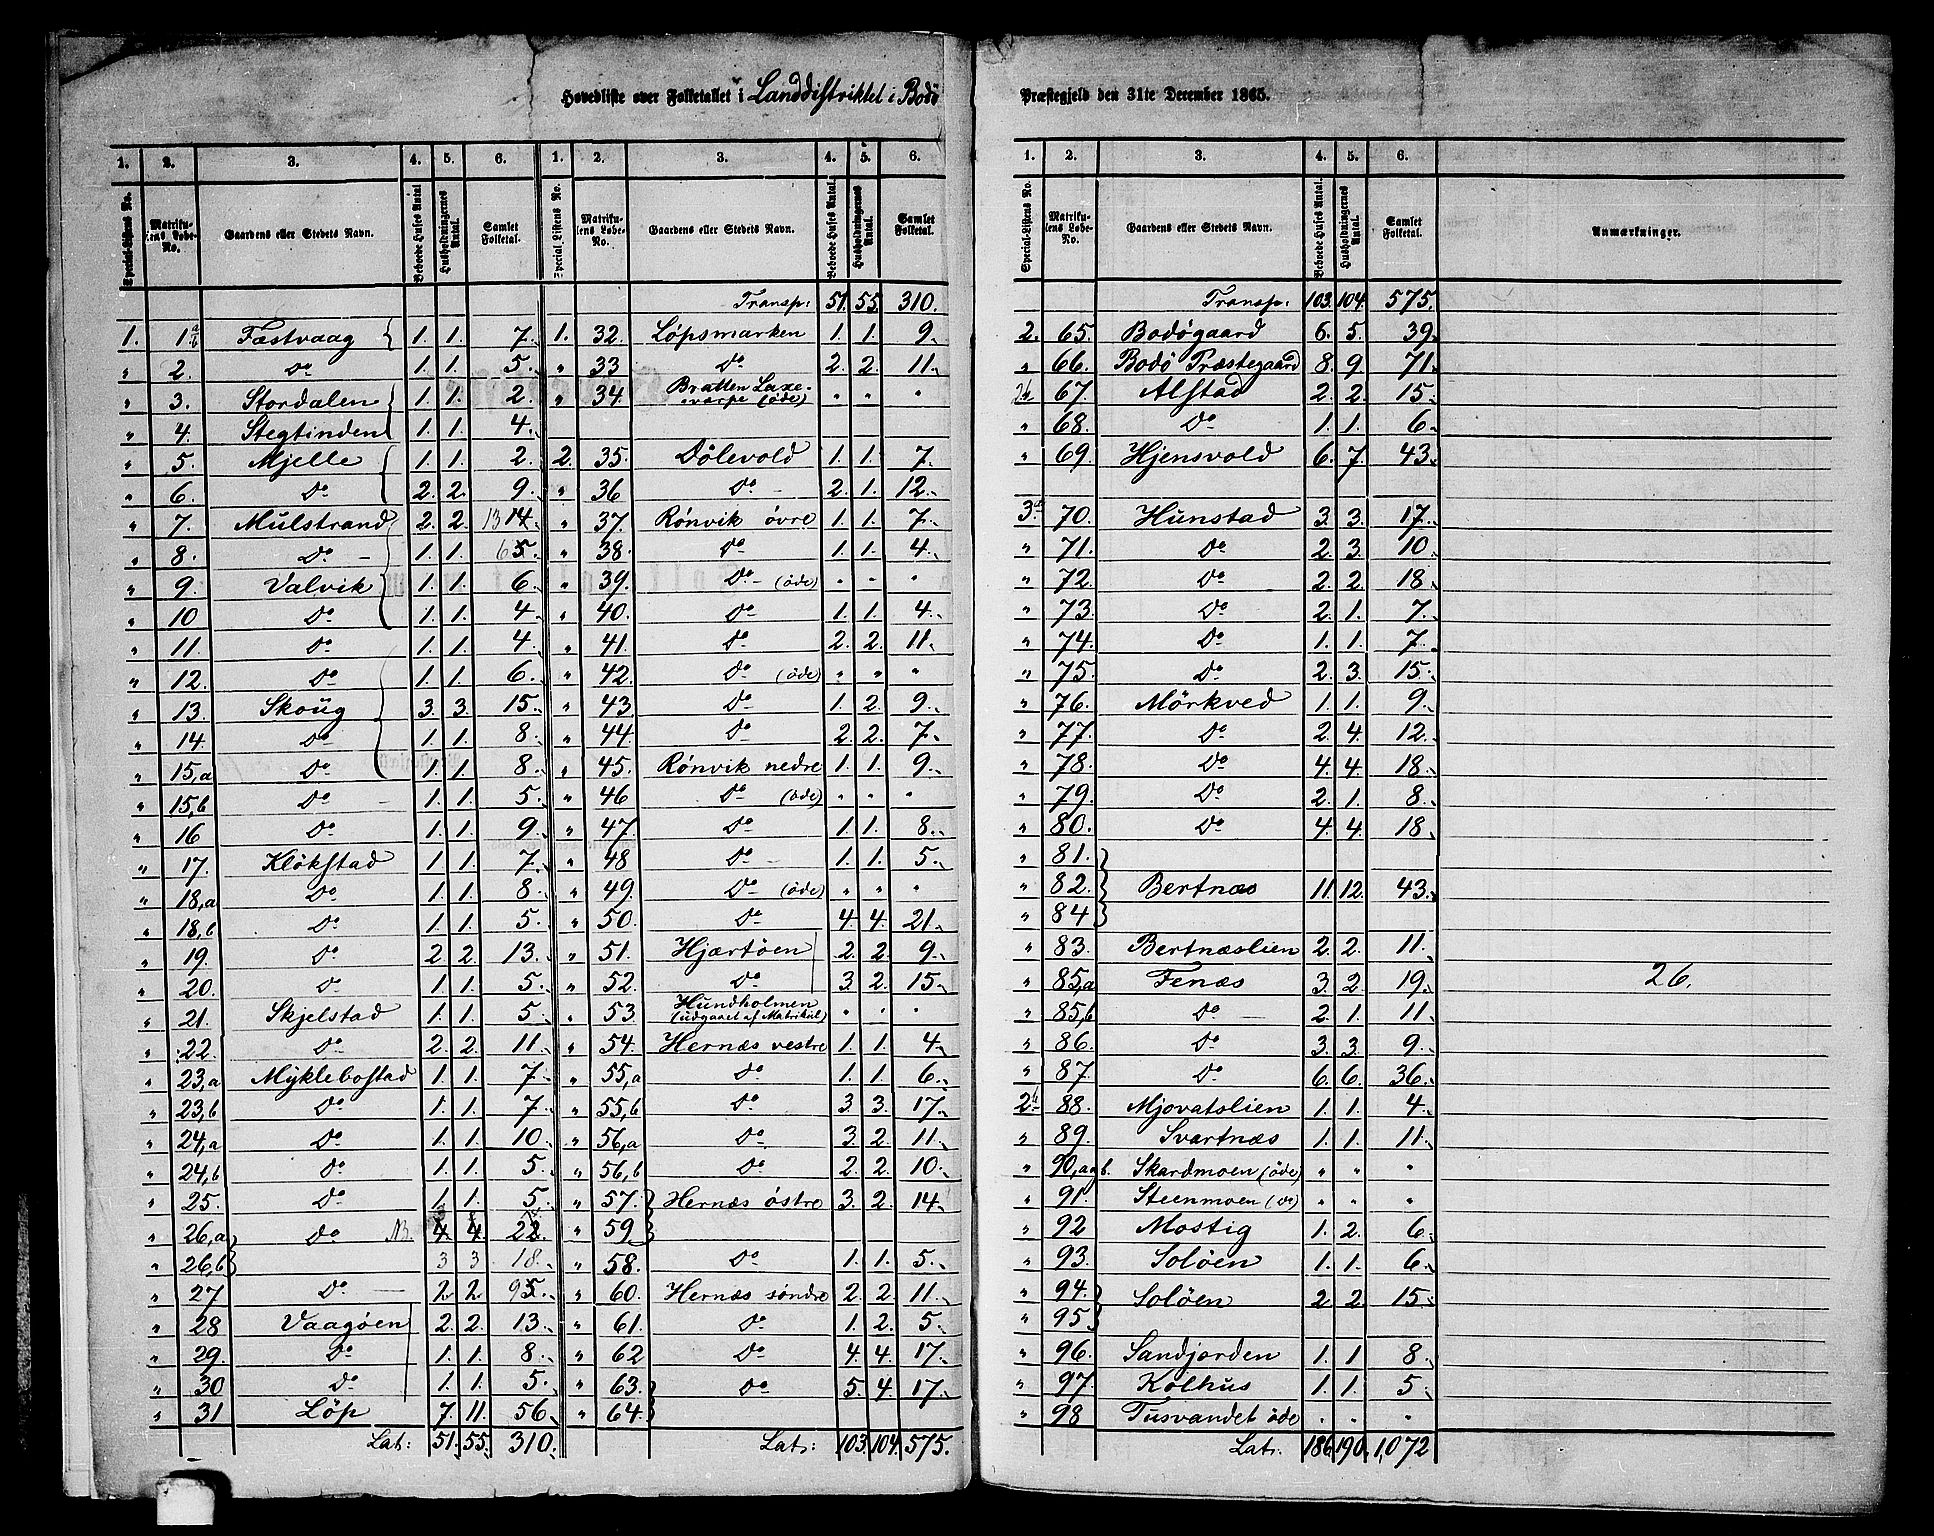 Hovedliste over Folketallet i Landdistriktet i Bodö
Præstegjeld den 31te December 1865.
1. 2. 3. 4. 5. 6. 1. 2. 3. 4. 5. 6.
Special-Listens No. Matrikulens Løbe-No. Gaardens eller Stedets Navn. Beboede Huses Antal. Husholdningernes Antal. Samlet Folketal. Special-Listens No. Matrikulens Løbe-No. Gaardens eller Stedets Navn. Beboede Huses Antal. Husholdningernes Antal. Samlet Folketal.
Transp: 51. 55. 310.
1. 1 Fæstvaag 1. 1. 7. 1. 32. Löpsmarken 1. 1. 9.
" 2. Do 1. 1. 5. " 33 Do 2. 2. 11.
" 3. Stordalen 1. 1. 2. " 34. Bratten Laxeværpe (öde) " " "
" 4. Stegtinden 1. 1. 4.
" 5. Mjelle 1. 1. 2. 2. 35. Dölevold 1. 1. 7.
" 6. Do 2. 2. 9. " 36 Do 2. 1. 12.
" 7. Mulstrand 2. 2. 13 14. " 37. Rönvik övre 1. 1. 7.
" 8. Do 1. 1. 6 5. " 38. Do 1. 1. 4.
" 9. Valvik 1. 1. 6. " 39. Do (öde) " " "
" 10 Do 1. 1. 4 " 40. Do 1. 1. 4.
" 11. Do 1. 1. 4. " 41. Do 2. 2. 11.
" 12. Do 1. 1. 6. " 42. Do (öde) " " "
" 13. Skoug 3. 3. 15. " 43. Do 1. 2. 9.
" 14. Do 1. 1. 8. " 44. Do 2. 2. 7.
" 15,a Do 1. 1. 8. " 45. Rönvik nedre 1. 1. 9.
" 15,b Do 1. 1. 5. " 46 Do (öde) " " "
" 16 Do 1. 1. 9. " 47. Do 1. 1. 8.
" 17. Klökstad 1. 1. 7. " 48 Do 1. 1. 5.
" 18,a Do 1. 1. 8. " 49. Do (öde) " " "
" 18,b Do 1. 1. 5. " 50. Do 4. 4. 21.
" 19. Do 2. 2. 13. " 51. Hjærtöen 2. 2. 9.
" 20. Do 1. 1. 5. " 52. Do 3. 2. 15.
" 21. Skjelstad 1. 1. 5. " 53 Hundholmen (udgaaet af Matrikul) " " "
" 22. Do 2. 2. 11. " 54. Hernæs vestre 1. 1. 4.
" 23,a Myklebostad 1. 1. 7. " 55,a Do 1. 1. 6.
" 23,b Do 1. 1. 7. " 55,b Do 3. 3. 17.
" 24,a Do 1. 1. 10. " 56,a Do 3. 2. 11.
" 24,b Do 1. 1. 5. " 56,b Do 2. 2. 10.
" 25. Do 1. 1. 5. " 57. Hernæs östre 3. 2. 14.
" 26,a Do 4. 4. 22. " 59.
" 26,b 3 3 18. " 58. Do 1. 1. 5.
" 27 Do 2. 2. 9 5. " 60. Hernæs söndre 2. 2. 11.
" 28 Vaagöen 2. 2. 13. " 61. Do 1. 2. 5.
" 29. Do 1. 1. 8. " 62 Do 4. 4. 17.
" 30 Do 1. 1. 5. " 63. Do 5. 4. 17.
" 31 Löp 7. 11. 56. " 64.
Lat: 51. 55. 310. Lat: 103. 104. 575.
1. 2. 3. 4. 5. 6.
Special-Listens No. Matrikulens Løbe-No. Gaardens eller Stedets Navn. Beboede Huses Antal. Husholdningernes Antal. Samlet Folketal. Anmærkninger.
Transp: 103. 104. 575.
2. 65. Bodögaard 6. 5. 39.
" 66. Bodö Præstegaard 8. 9 71.
67. Alstad 2. 2. 15.
" 68. Do 1. 1. 6.
" 69. Hjensvold 6. 7. 43.
3. 70. Hunstad 3. 3. 17.
" 71. Do 2. 3. 10.
" 72. Do 2. 2. 18.
" 73. Do 2. 1. 7.
" 74. Do 1. 1. 7.
" 75. Do 2. 3. 15.
" 76. Mörkved 1. 1. 9.
" 77. Do 2. 4. 12.
" 78. Do 4. 4. 18.
" 79. Do 2. 1. 8.
" 80. Do 4. 4. 18.
" 81.
" 82. Bertnæs 11. 12. 43.
" 84
" 83. Bertnæslien 2. 2. 11.
" 85,a Fenæs 3. 2. 19. 26.
" 85,b Do 2. 1. 11.
" 86. Do 3. 3. 9.
" 87. Do 6. 6. 36.
2 88. Mjovatslien 1. 1. 4.
" 89. Svartnæs 1. 1. 11.
" 90,a og b. Skardmoen (öde) " " "
" 91. Steenmoen " " "
" 92 Mostig 1. 2. 6.
" 93. Solöen 1. 1. 6.
" 94. Solöen 2. 2. 15.
" 95
" 96. Sandjorden 1. 1 8.
" 97. Kolhus 1. 1. 5.
" 98 Tusvandet öde " " "
Lat. 186. 190. 1,072